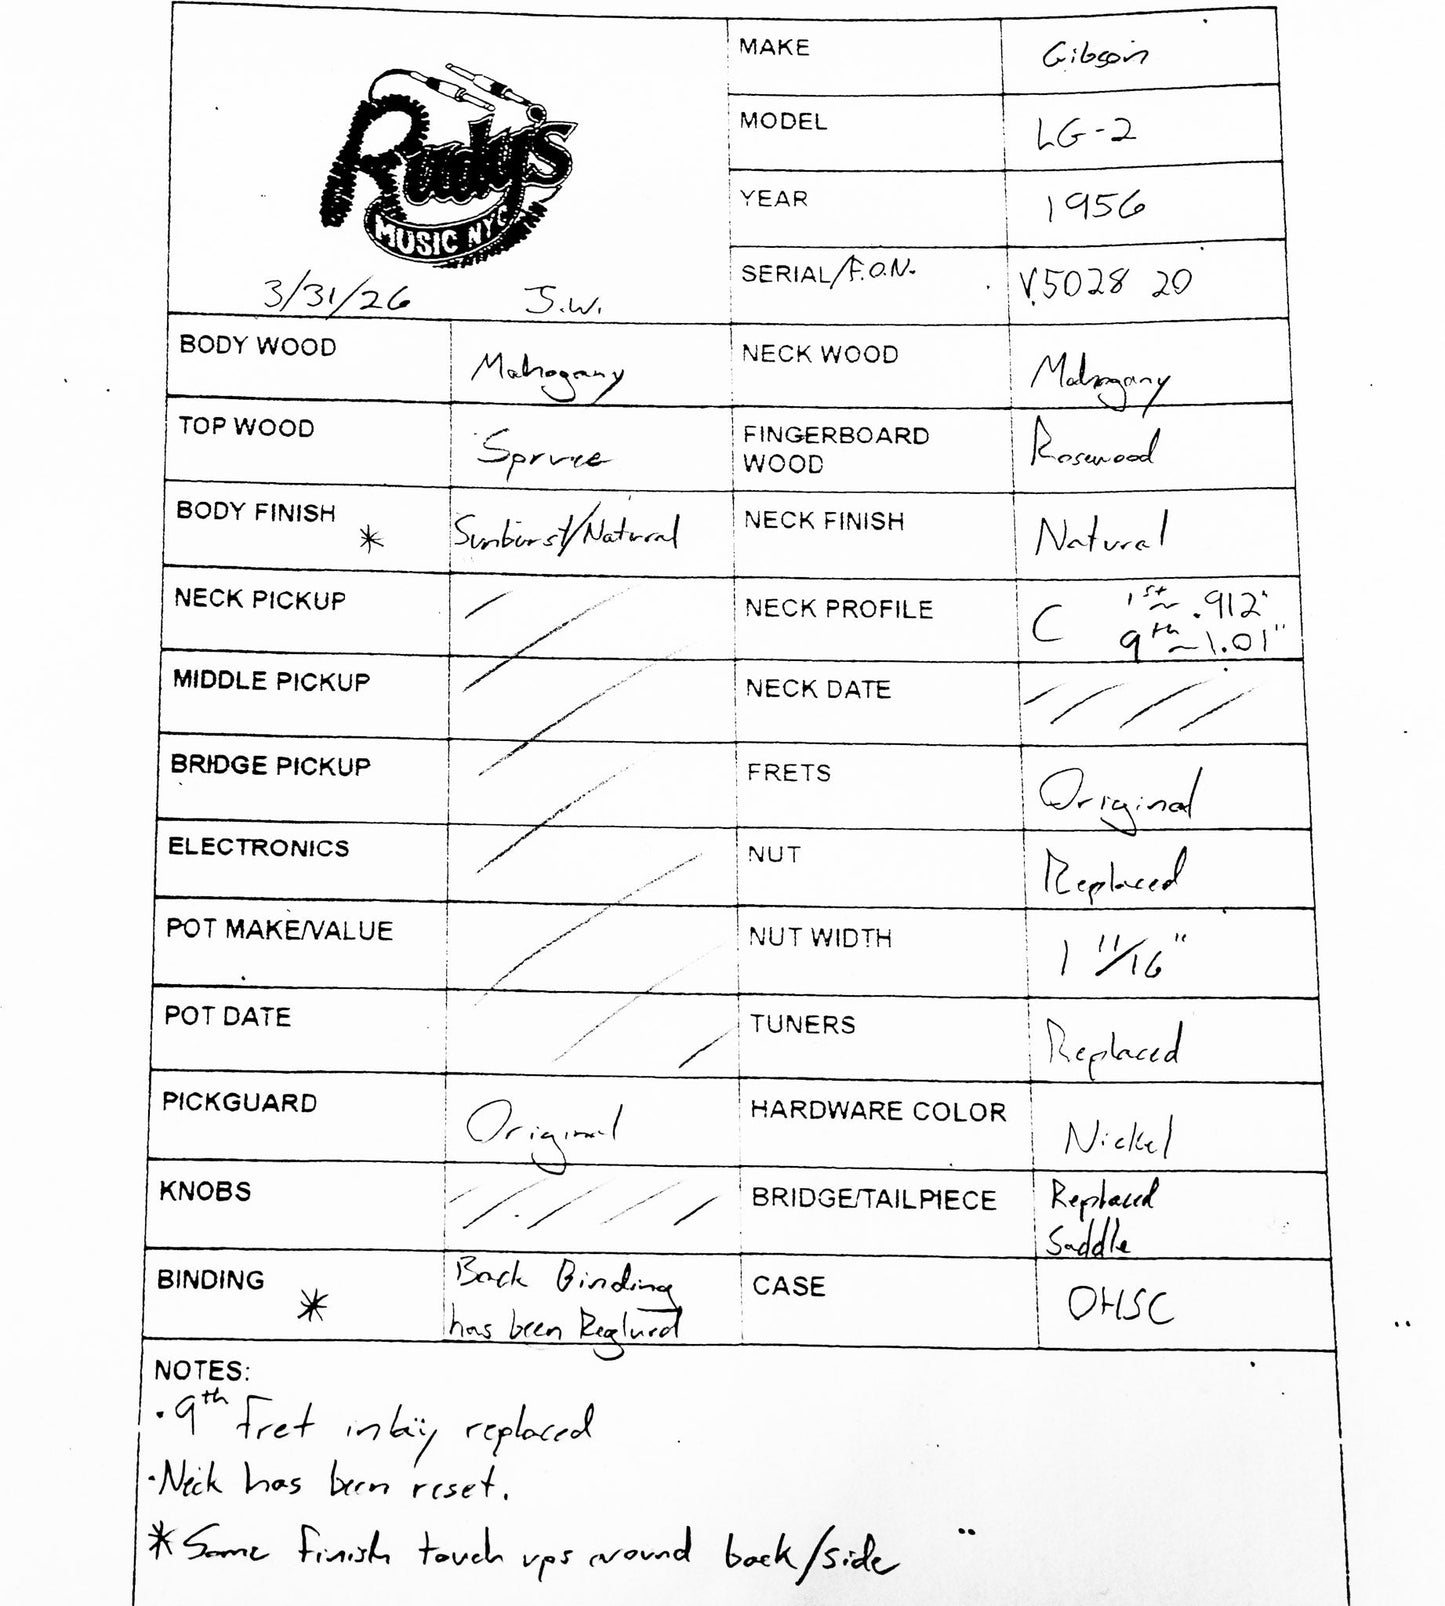 Rudy's
MUSIC NYC
3/31/26 J.W.
MAKE Gibson
MODEL LG-2
YEAR 1956
SERIAL/F.O.N. V5028 20
BODY WOOD Mahogany
NECK WOOD Mahogany
TOP WOOD Spruce
FINGERBOARD
WOOD Rosewood
BODY FINISH * Sunburst/Natural
NECK FINISH Natural
NECK PICKUP
NECK PROFILE C 1st ~ .912"
9th ~ 1.01"
MIDDLE PICKUP
NECK DATE
BRIDGE PICKUP
FRETS Original
ELECTRONICS
NUT Replaced
POT MAKE/VALUE
NUT WIDTH 1 11/16"
POT DATE
TUNERS Replaced
PICKGUARD Original
HARDWARE COLOR Nickel
KNOBS
BRIDGE/TAILPIECE Replaced
Saddle
BINDING * Back Binding
has been Reglued
CASE OHSC
NOTES:
· 9th Fret inlay replaced
· Neck has been reset.
* Some finish touch ups around back/side